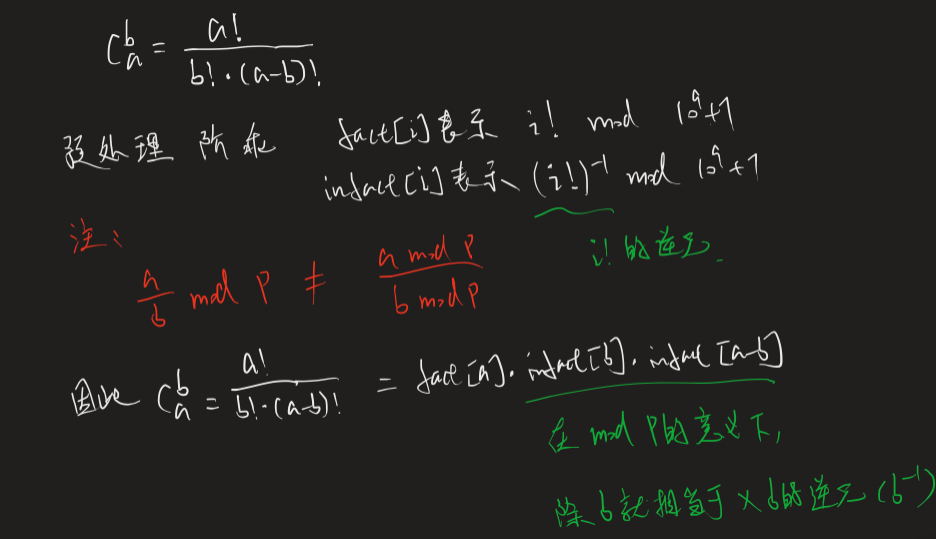 C_a^b = a! / (b!·(a-b)!)
预处理 阶乘 fact[i]表示 i! mod 10^9+7
infact[i]表示 (i!)^-1 mod 10^9+7
i!的逆元.
注:
a/b mod P ≠ (a mod P)/(b mod P)
因此 C_a^b = a! / (b!·(a-b)!) = fact[a]·infact[b]·infact[a-b]
在 mod P的意义下,
除b就相当于×b的逆元(b^-1)